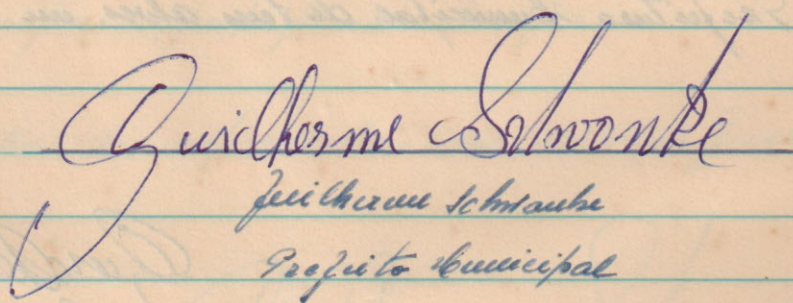 Guilherme Schwanke
Guilherme Schwanke
Prefeito Municipal